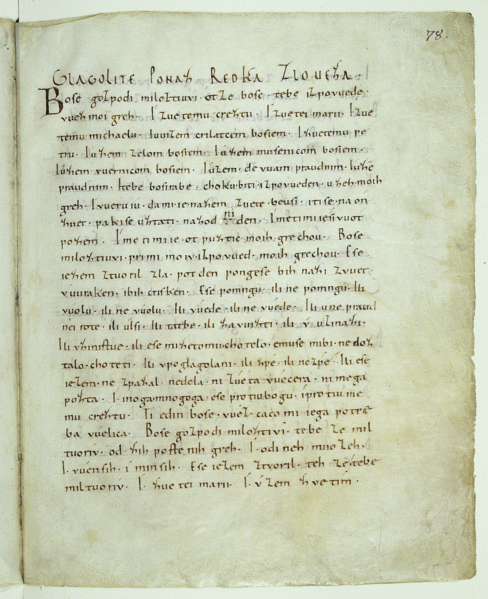 GLAGOLITE PONAZ REDKA ZLOUEZA.
78.
Bose gozpodi miloztiui. otze bose. tebe izpovuede.
vuez moi greh. I zuetemu creztu. I zuetei marii. I zue
temu michaelu. Iuuizem crilatcem bosiem. I zuetemu pe
tru. I uzem zelom bosiem. I uzem musenicom bosiem.
I uzem vuernicom bosiem. I uzem. devuam praudnim. I uze
praudnim. Itebe bosirabe. choku biti izpovueden. uzeh moih
greh. I vueruiu. da mi. ie nazem zuete. beusi. iti se. na on
zuet. pakise uztati. nazod ni den. Imeti mi ie sivuot
pozem. Imeti mi ie. ot puztic moih grechou. Bose
miloztivi. primi moiv izpovued. moih grechou. Ese
iezem ztvoril zla. pot den pongese bih nazi zvuet
vuuraken. ibih crisken. Ese pomngu. ili ne pomngu. Ili
vuolu. ili ne vuolu. Ili vuede. ili ne vuede. Ili u ne praud
nei rote. ili ulsi. Ili tatbe. ili zavuizti. ili v uzmazi.
Ili vzinistve. ili ese mi ze tomu chotelo. emuse mi bi ne doz
talo. choteti. Ili vpoglagolani. ili zpe. ili nezpe. Ili ese
iezem. ne zpazal. nedela. ni zueta vuecera. ni mega
pozta. I inoga mnogoga. ese protiubogu. iprotiu me
mu creztu. Ti edin bose. vuez. caco mi iega potre
ba vuelica. Bose gozpodi miloztivi. tebe ze mil
tuoriv. od sih postenih greh. I odineh mnozeh.
I vuensih. i minsih. Ese iezem ztvoril. teh ze tebe
miltuoriv. I zuetei marii. I vzem zvetim.